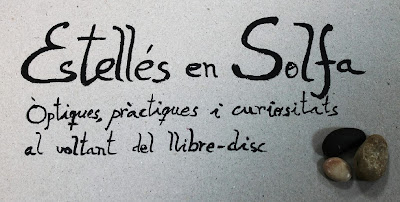 Estellés en Solfa
Òptiques, pràctiques i curiositats
al voltant del llibre-disc